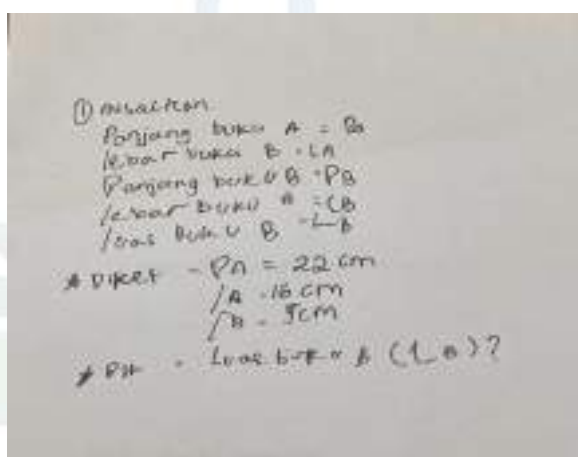 ① misalkan
Panjang buku A = PA
lebar buku B = LA
Panjang buku B = PB
lebar buku A = LB
luas buku B = LB
* Diket - PA = 22 cm
lA = 16 cm
lB = 5cm
* Dit = Luas buku B (LB)?